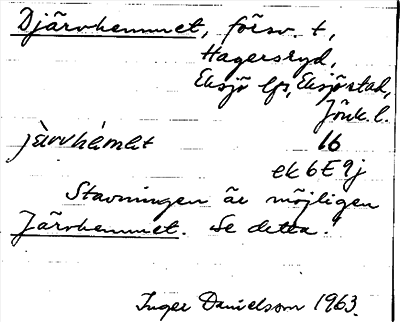 Djärvhemmet, försv. t,
Hagersryd,
Eksjö lfs, Eksjö stad,
Jönk. l.
jàrvhémet 16
ek 6E 9j
Stavningen är möjligen
Järvhemmet. Se detta!
Inger Danielsson 1963.